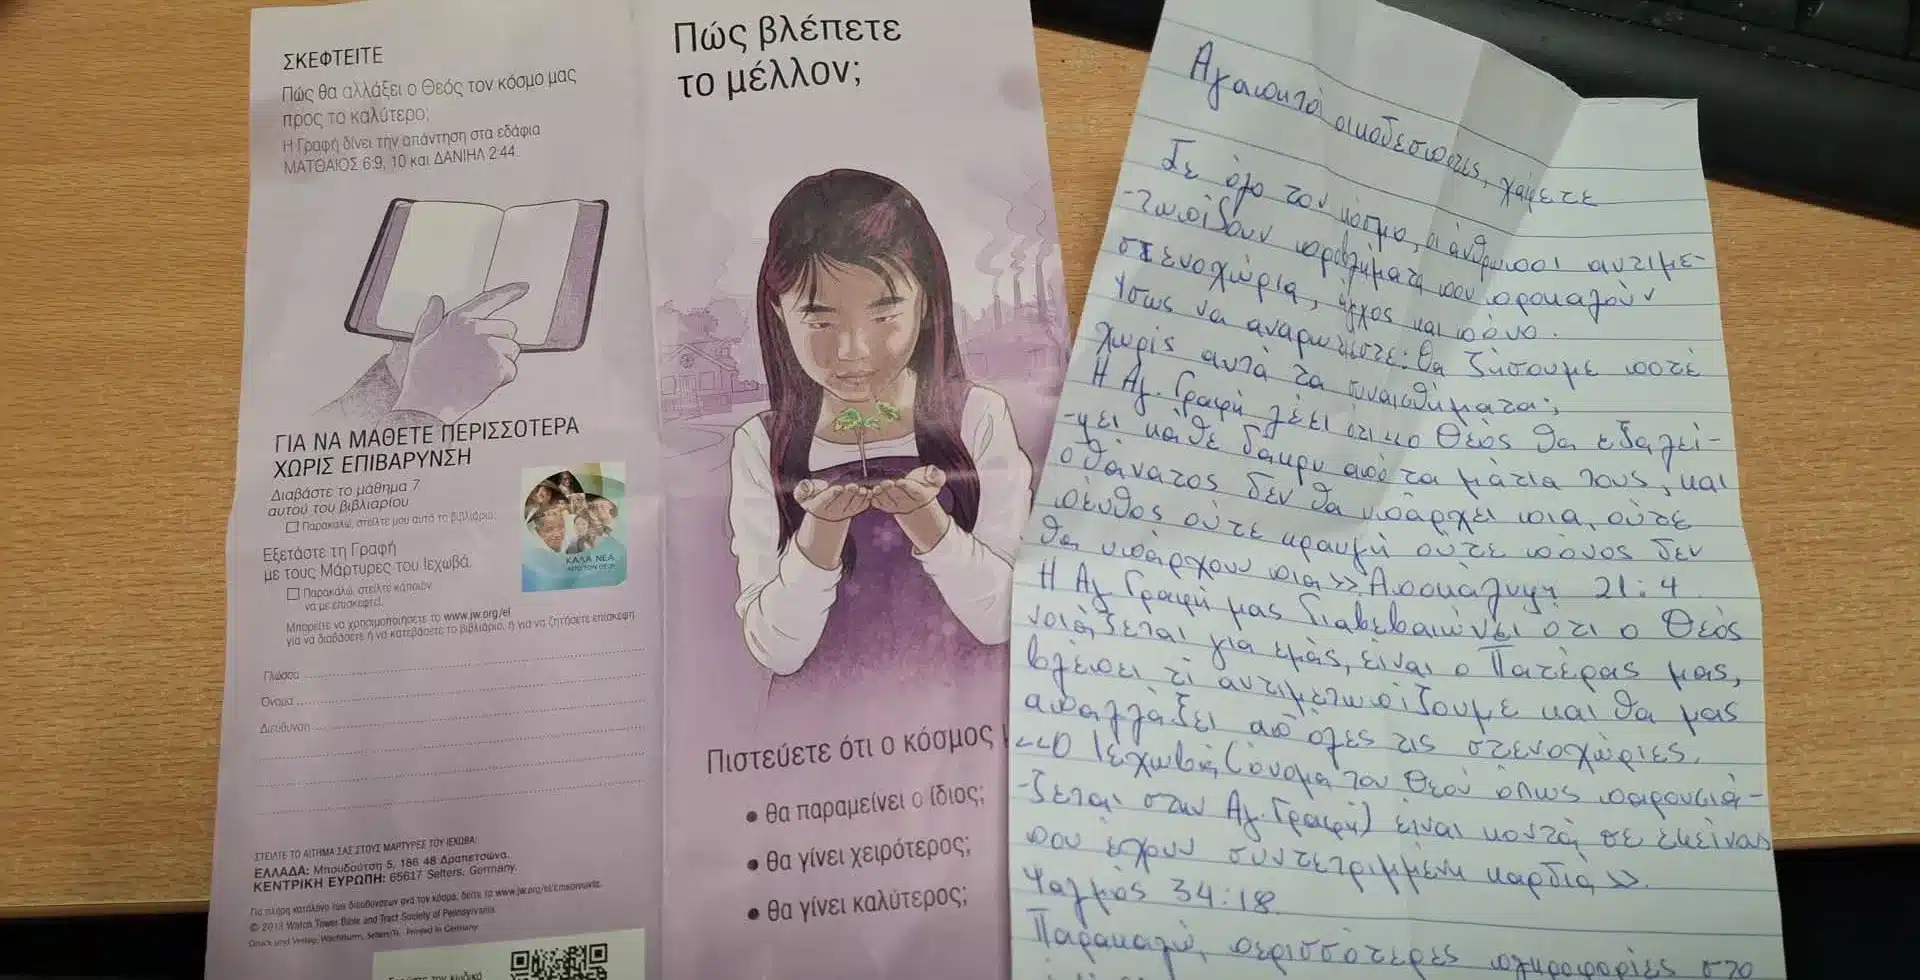 ΣΚΕΦΤΕΙΤΕ
Πώς θα αλλάξει ο Θεός τον κόσμο μας
προς το καλύτερο;
Η Γραφή δίνει την απάντηση στα εδάφια
ΜΑΤΘΑΙΟΣ 6:9, 10 και ΔΑΝΙΗΛ 2:44.
ΓΙΑ ΝΑ ΜΑΘΕΤΕ ΠΕΡΙΣΣΟΤΕΡΑ
ΧΩΡΙΣ ΕΠΙΒΑΡΥΝΣΗ
Διαβάστε το μάθημα 7
αυτού του βιβλιαρίου
Παρακαλώ, στείλτε μου αυτό το βιβλιάριο.
Εξετάστε τη Γραφή
με τους Μάρτυρες του Ιεχωβά.
Παρακαλώ, στείλτε κάποιον
να με επισκεφτεί.
ΚΑΛΑ ΝΕΑ
ΑΠΟ ΤΟΝ ΘΕΟ!
Μπορείτε να χρησιμοποιήσετε το www.jw.org/el
για να διαβάσετε ή να κατεβάσετε το βιβλιάριο, ή για να ζητήσετε επίσκεψη.
Γλώσσα
Όνομα
Διεύθυνση
ΣΤΕΙΛΤΕ ΤΟ ΑΙΤΗΜΑ ΣΑΣ ΣΤΟΥΣ ΜΑΡΤΥΡΕΣ ΤΟΥ ΙΕΧΩΒΑ:
ΕΛΛΑΔΑ: Μπουδούτση 5, 186 48 Δραπετσώνα.
ΚΕΝΤΡΙΚΗ ΕΥΡΩΠΗ: 65617 Selters, Germany.
Για πλήρη κατάλογο των διευθύνσεων ανά τον κόσμο, δείτε το www.jw.org/el/επικοινωνία.
© 2013 Watch Tower Bible and Tract Society of Pennsylvania
Druck und Verlag: Wachtturm, Selters/Ts. Printed in Germany
τον κωδικό
Πώς βλέπετε
το μέλλον;
Πιστεύετε ότι ο κόσμος
• θα παραμείνει ο ίδιος;
• θα γίνει χειρότερος;
• θα γίνει καλύτερος;
Αγαπητοί οικοδεσπότες, χαίρετε
Σε όλο τον κόσμο, οι άνθρωποι αντιμε-
-τωπίζουν προβλήματα που προκαλούν
στενοχώρια, άγχος και πόνο.
Ίσως να αναρωτιέστε: Θα ζήσουμε ποτέ
χωρίς αυτά τα συναισθήματα;
Η Αγ. Γραφή λέει ότι «ο Θεός θα εξαλεί-
-ψει κάθε δάκρυ από τα μάτια τους, και
ο θάνατος δεν θα υπάρχει πια, ούτε
πένθος ούτε κραυγή ούτε πόνος δεν
θα υπάρχουν πια» Αποκάλυψη 21:4
Η Αγ Γραφή μας διαβεβαιώνει ότι ο Θεός
νοιάζεται για εμάς, είναι ο Πατέρας μας,
βλέπει τί αντιμετωπίζουμε και θα μας
απαλλάξει από όλες τις στενοχώριες.
«Ο Ιεχωβά, (όνομα του Θεού όπως παρουσιά-
-ζεται στην Αγ. Γραφή) είναι κοντά σε εκείνους
που έχουν συντετριμμένη καρδιά».
Ψαλμός 34:18.
Παρακαλώ, περισσότερες πληροφορίες στο